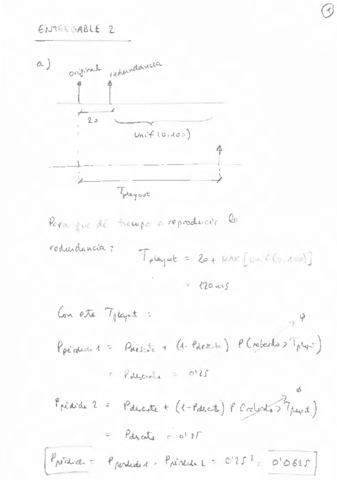 1
ENTREGABLE 2
a)
original redundancia
20
Unif(0,100)
Tplayout
Para que dé tiempo a reproducir la
redundancia: Tplayout = 20 + MAX [Unif(0,100)]
= 120 ms
Con este Tplayout:
Ppérdida 1 = Pdescarte + (1-Pdescarte) P(retardo > Tplayout)
= Pdescarte = 0'25
Ppérdida 2 = Pdescarte + (1-Pdescarte) P(retardo > Tplayout)
= Pdescarte = 0'25
Ppérdida = Ppérdida 1 · Ppérdida 2 = 0'25² = 0'0625